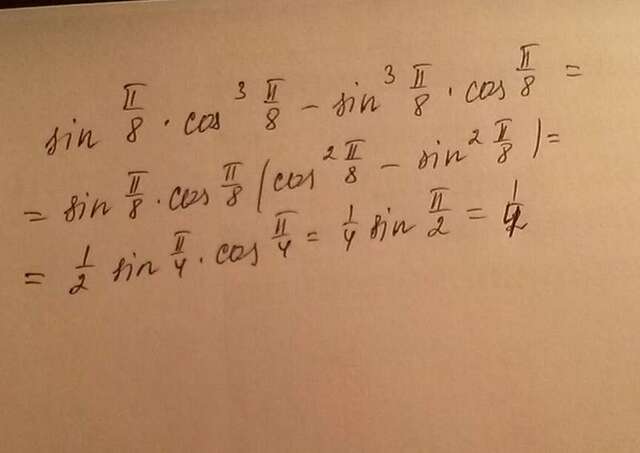 sin π/8 · cos³ π/8 − sin³ π/8 · cos π/8 =
= sin π/8 · cos π/8 (cos² π/8 − sin² π/8) =
= 1/2 sin π/4 · cos π/4 = 1/4 sin π/2 = 1/4